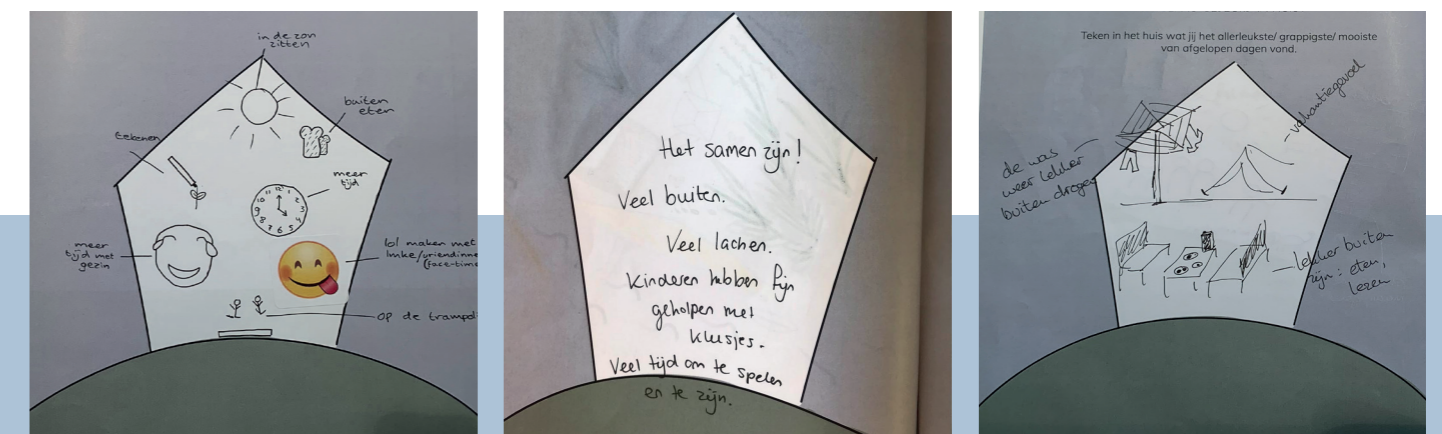 in de zon
zitten
buiten
eten
tekenen
meer
tijd
12
1
2
3
4
5
6
7
8
9
10
11
meer
tijd met
gezin
lol maken met
Imke/vriendinne
(face-time
op de trampol
Het samen zijn!
Veel buiten.
Veel lachen.
Kinderen hebben fijn
geholpen met
klusjes.
Veel tijd om te spelen
en te zijn.
Teken in het huis wat jij het allerleukste/ grappigste/ mooiste
van afgelopen dagen vond.
vakantiegevoel
de was
weer lekker
buiten drogen
lekker buiten
zijn: eten,
lezen